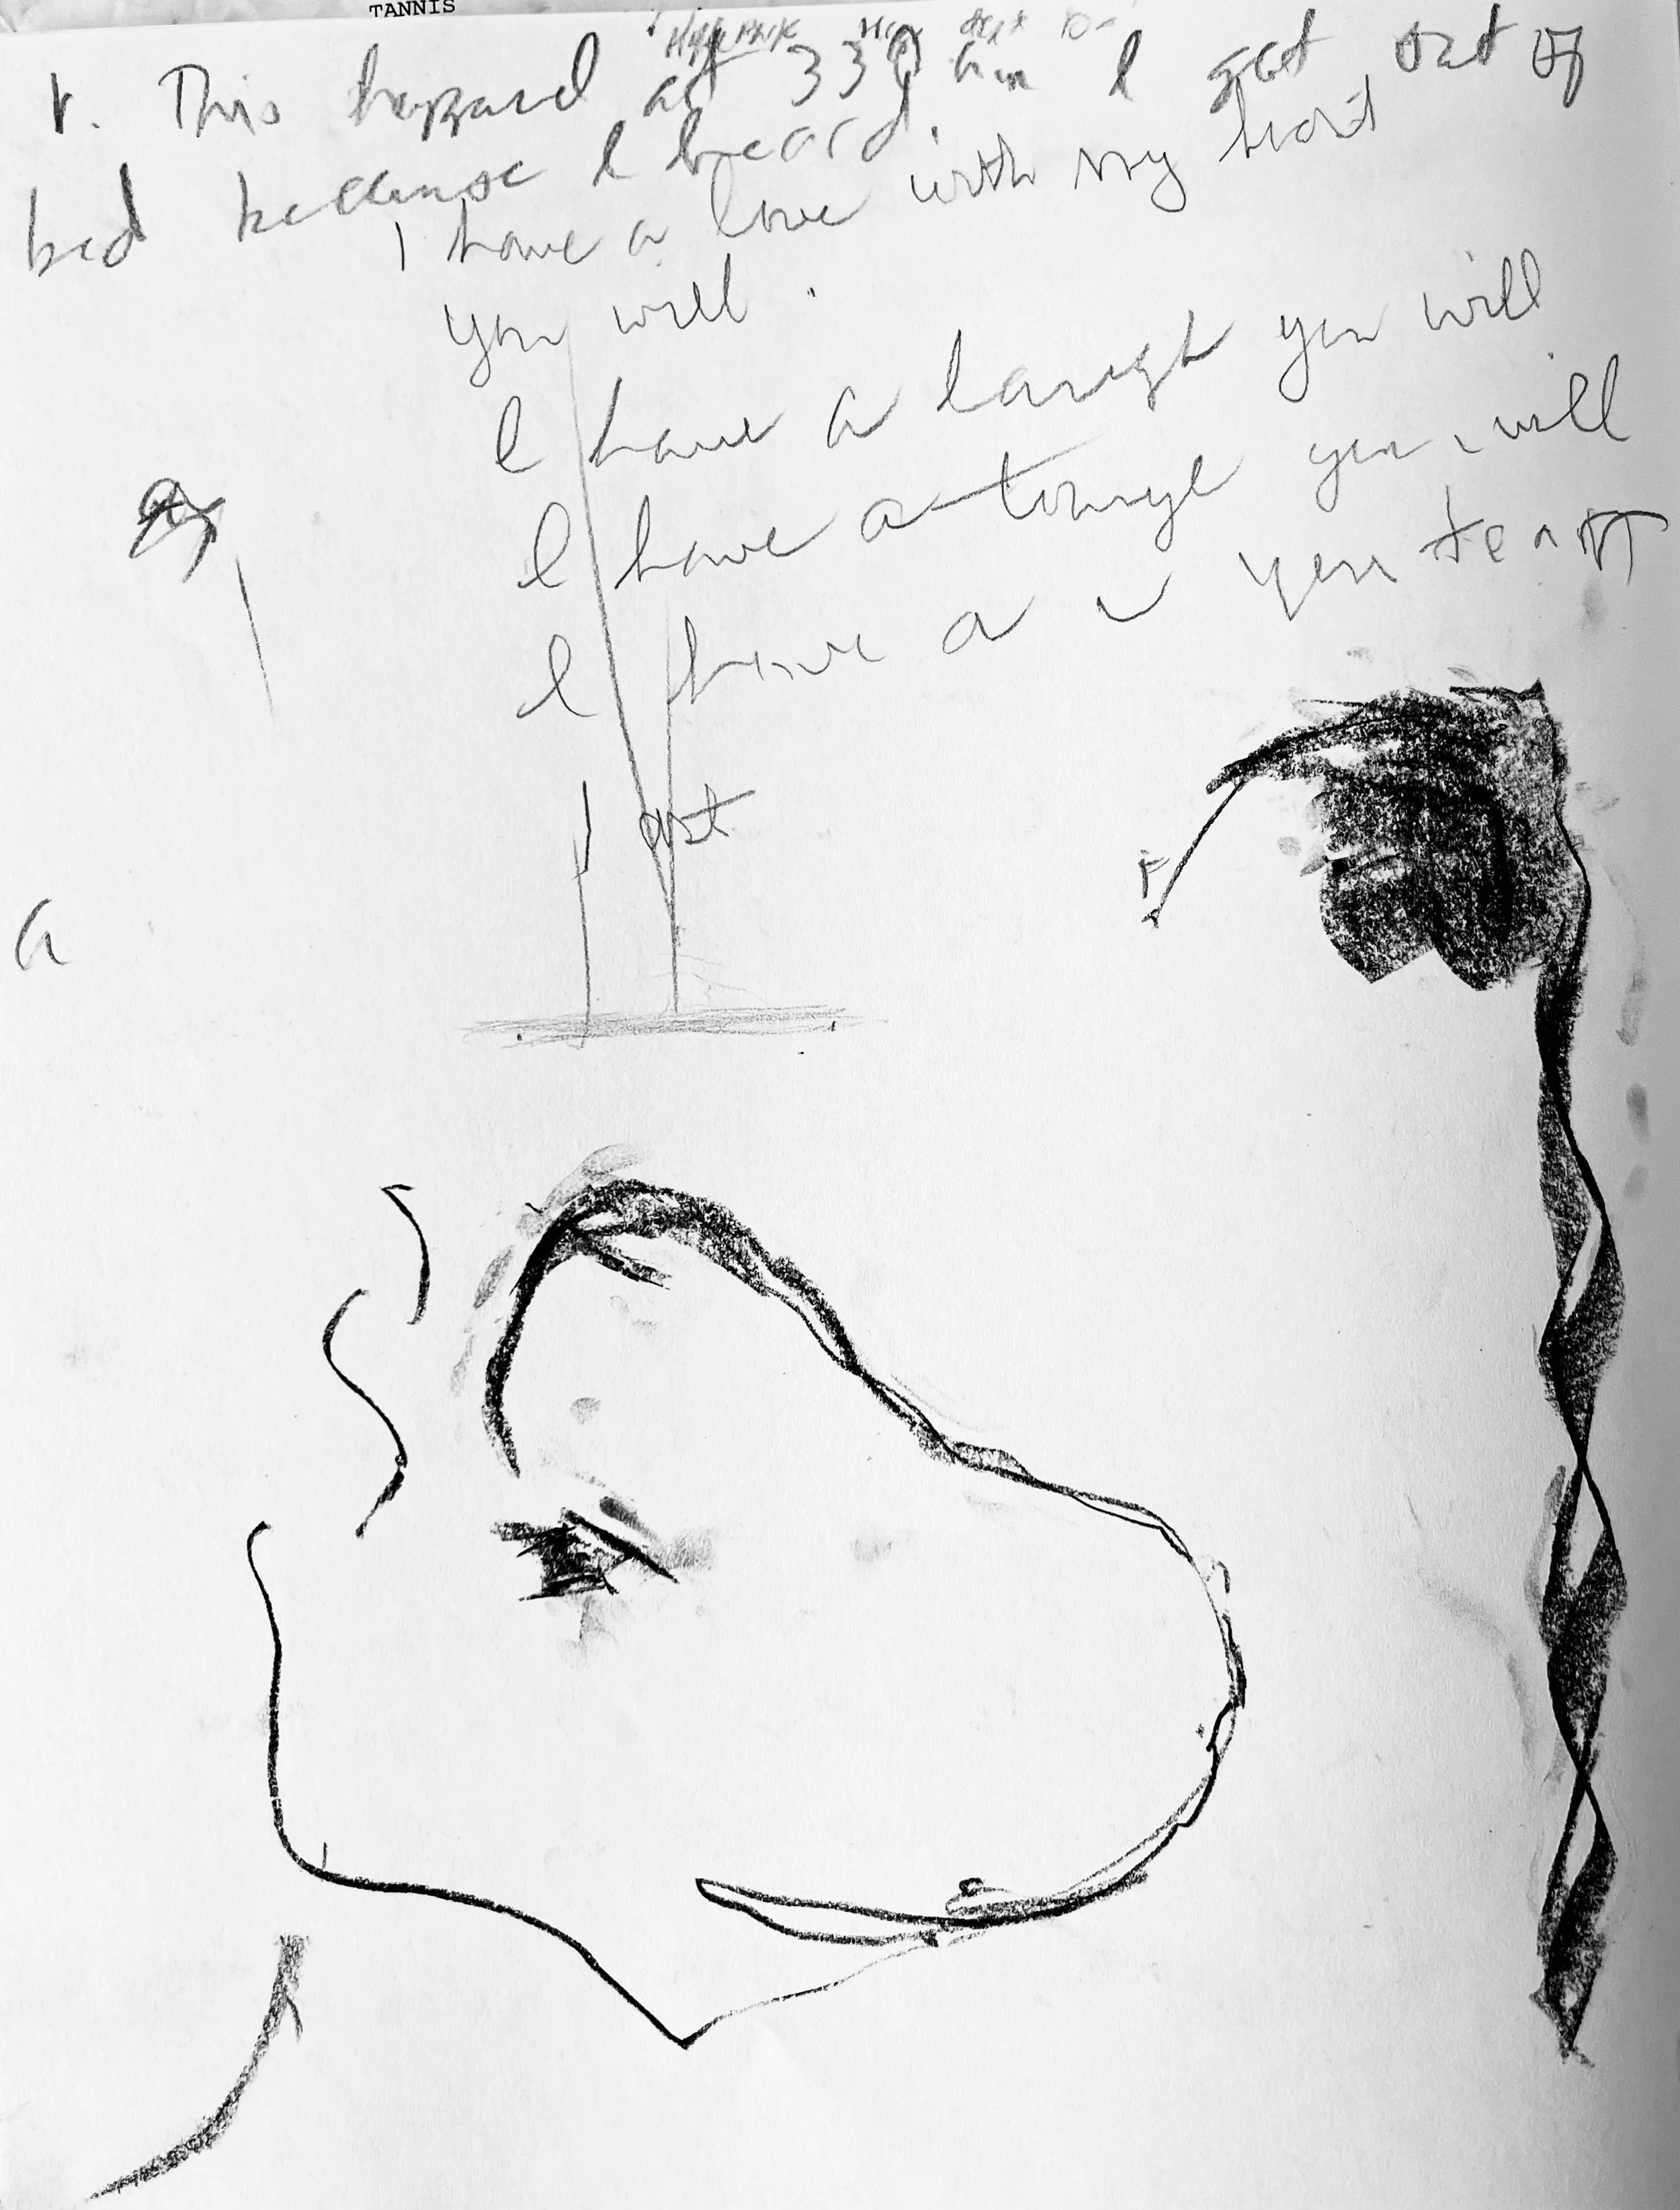 TANNIS
1. This happened at 330 am I got out of
bed because I heard.
I have a love with my heart
you will.
I have a laugh you will
I have a tounge you will
I have a you tear
I ast
F
a